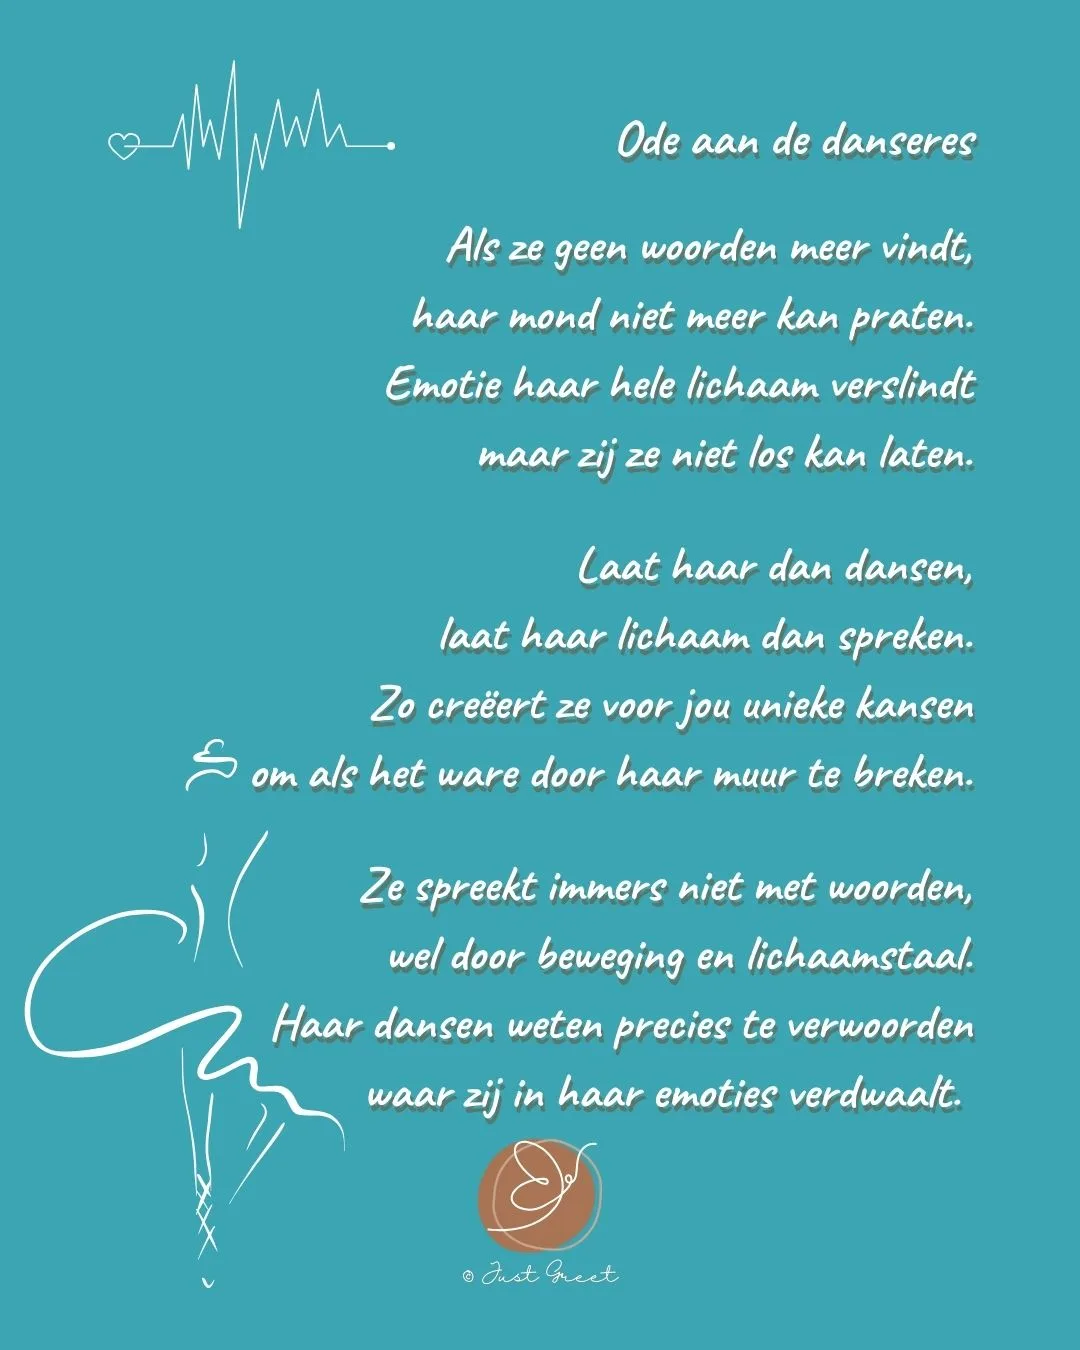 Ode aan de danseres
Als ze geen woorden meer vindt,
haar mond niet meer kan praten.
Emotie haar hele lichaam verslindt
maar zij ze niet los kan laten.
Laat haar dan dansen,
laat haar lichaam dan spreken.
Zo creëert ze voor jou unieke kansen
om als het ware door haar muur te breken.
Ze spreekt immers niet met woorden,
wel door beweging en lichaamstaal.
Haar dansen weten precies te verwoorden
waar zij in haar emoties verdwaalt.
© Just Greet